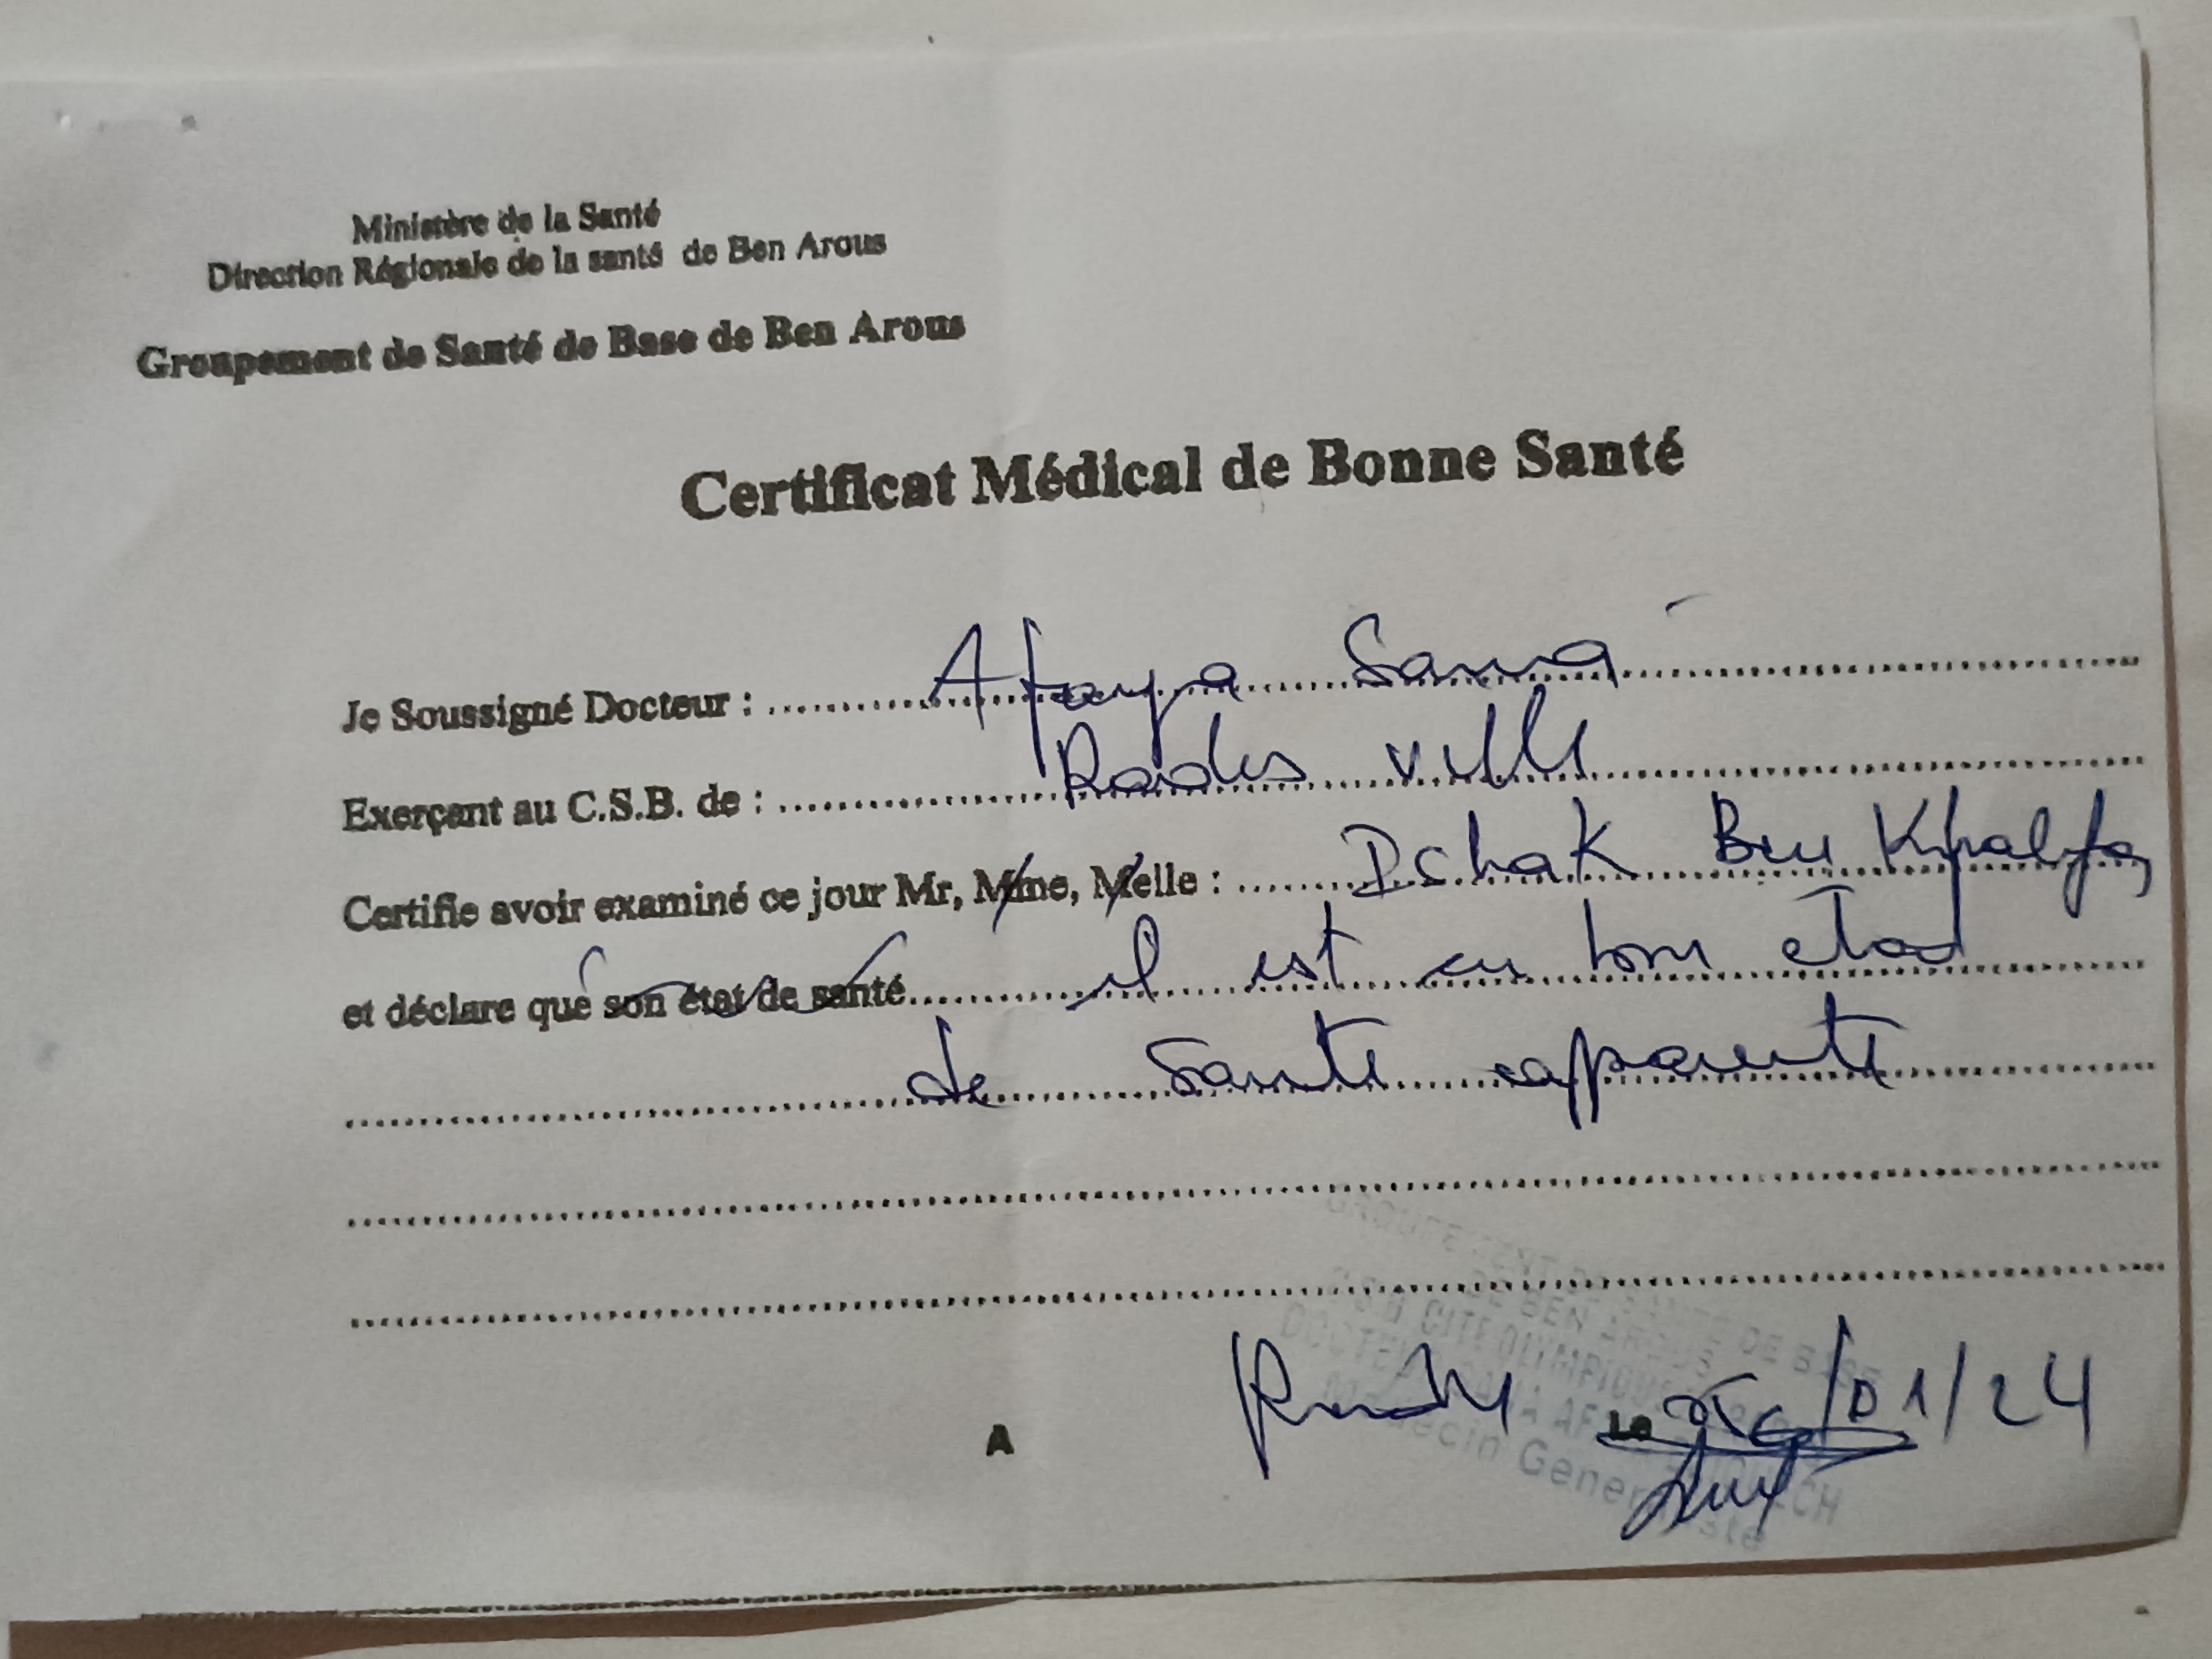 Ministère de la Santé
Direction Régionale de la santé de Ben Arous
Groupement de Santé de Base de Ben Arous
Certificat Médical de Bonne Santé
Je Soussigné Docteur : Afaya Sama
Exerçant au C.S.B. de : Rades ville
Certifie avoir examiné ce jour Mr, Mme, Melle : Ischak Ben Khalifa
et déclare que son état de santé il est en bon état
de santé apparente
GROUPEMENT DE SANTE DE BASE
DE BEN AROUS
CITE OLYMPIQUE
DOCTEUR
Médecin Generaliste
A Rades Le 26/01/24